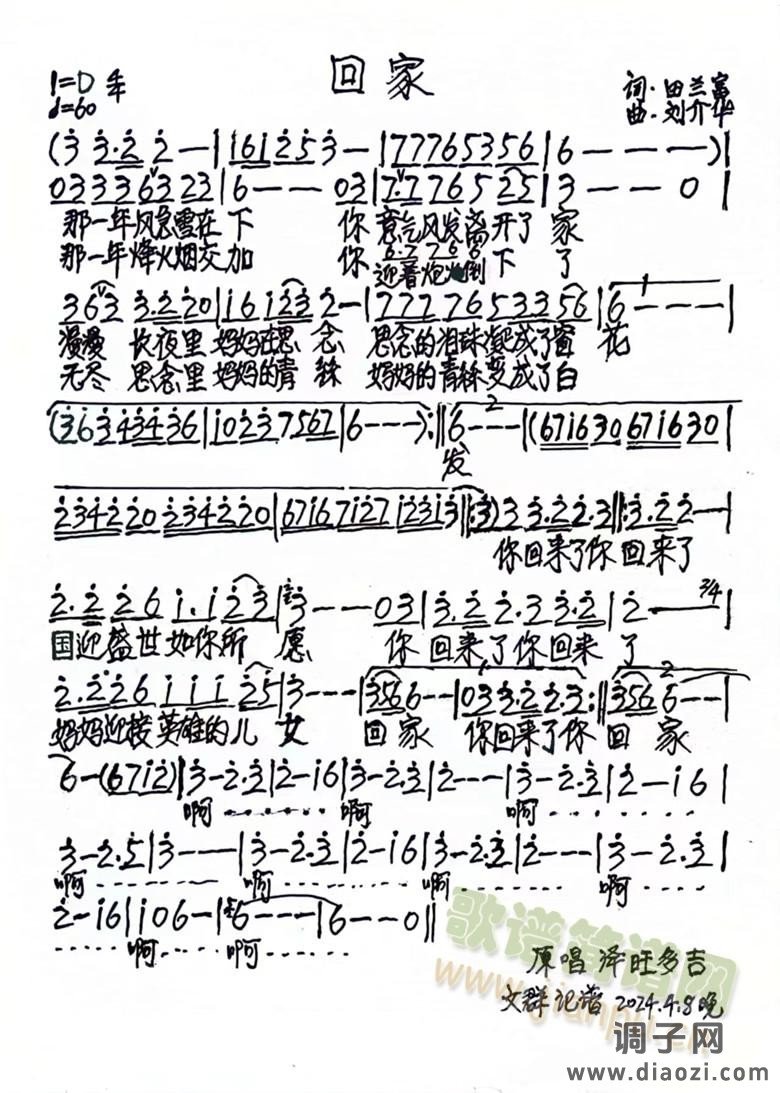 回家
1=D 4/4
♩=60
词·田兰富
曲·刘介华
(3 3·2 2— | 1 6 1 2 5 3— | 7 7 7 6 5 3 5 6 | 6 — — —) |
0 3 3 3 6 3 2 3 | 6 — — 0 3 | 7·7 7 6 5 2 5 | 3 — — 0 |
那一年风急雪在下 你意气风发离开了家
6 7 7 6 6
那一年烽火烟交加 你迎着炮火倒下了
3 6 3 3·2 2 0 | 1 6 1 2 3 2— | 7 7 7 7 6 5 3 3 5 6 | 6 — — — |
漫漫长夜里妈妈在思念 思念的泪珠凝成了窗花
无尽思念里妈妈的青丝 妈妈的青丝变成了白
(3 6 3 4 3 4 3 6 | 1 0 2 3 7 5 6 7 | 6 — — —) :‖ 6 — — — | (6 7 1 6 3 0 6 7 1 6 3 0 |
发
2 3 4 2 2 0 2 3 4 2 2 0 | 6 7 1 6 7 1 2 7 1 2 3 1 3 ‖: 3) 3 3·2 2·3 ‖: 3·2 2 — |
你回来了你回来了
2·2 2 6 1·1 2 3 | 3 — — 0 3 | 3·2 2·3 3·2 | 2 — 3/4 |
国迎盛世如你所愿 你回来了你回来了
2·2 2 6 1 1 1 2 5 | 3 — — | 3 5 6 6 — — | 0 3 3·2 2·3 :‖ 3 5 6 6 — — |
妈妈迎接英雄的儿女 回家 你回来了你回家
6 — (6 7 1 2) | 3 — 2·3 | 2 — 1 6 | 3 — 2·3 | 2 — — — | 3 — 2·3 | 2 — 1 6 |
啊········ 啊 啊·······
3 — 2·5 | 3 — — — | 3 — 2·3 | 2 — 1 6 | 3 — 2·3 | 2 — — — | 3 — 2·3 |
啊········ 啊········ 啊········ 啊·······
2 — 1 6 | 1 0 6 — | 6 — — — | 6 — — 0 ‖
······ 啊·· 啊·······
原唱 泽旺多吉
文群记谱 2024.4.8晚
歌谱简谱网
www.jianpu.cn
调子网
www.diaozi.com